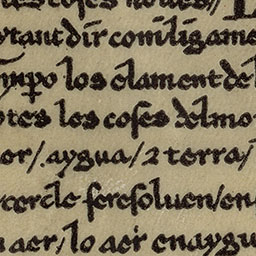 es coses noues//
tant dir com ligame
po los elament de
tes les coses del mo
or/. aygua/2 terra/
cercle se resoluen/en
aer/ lo aer en aygu